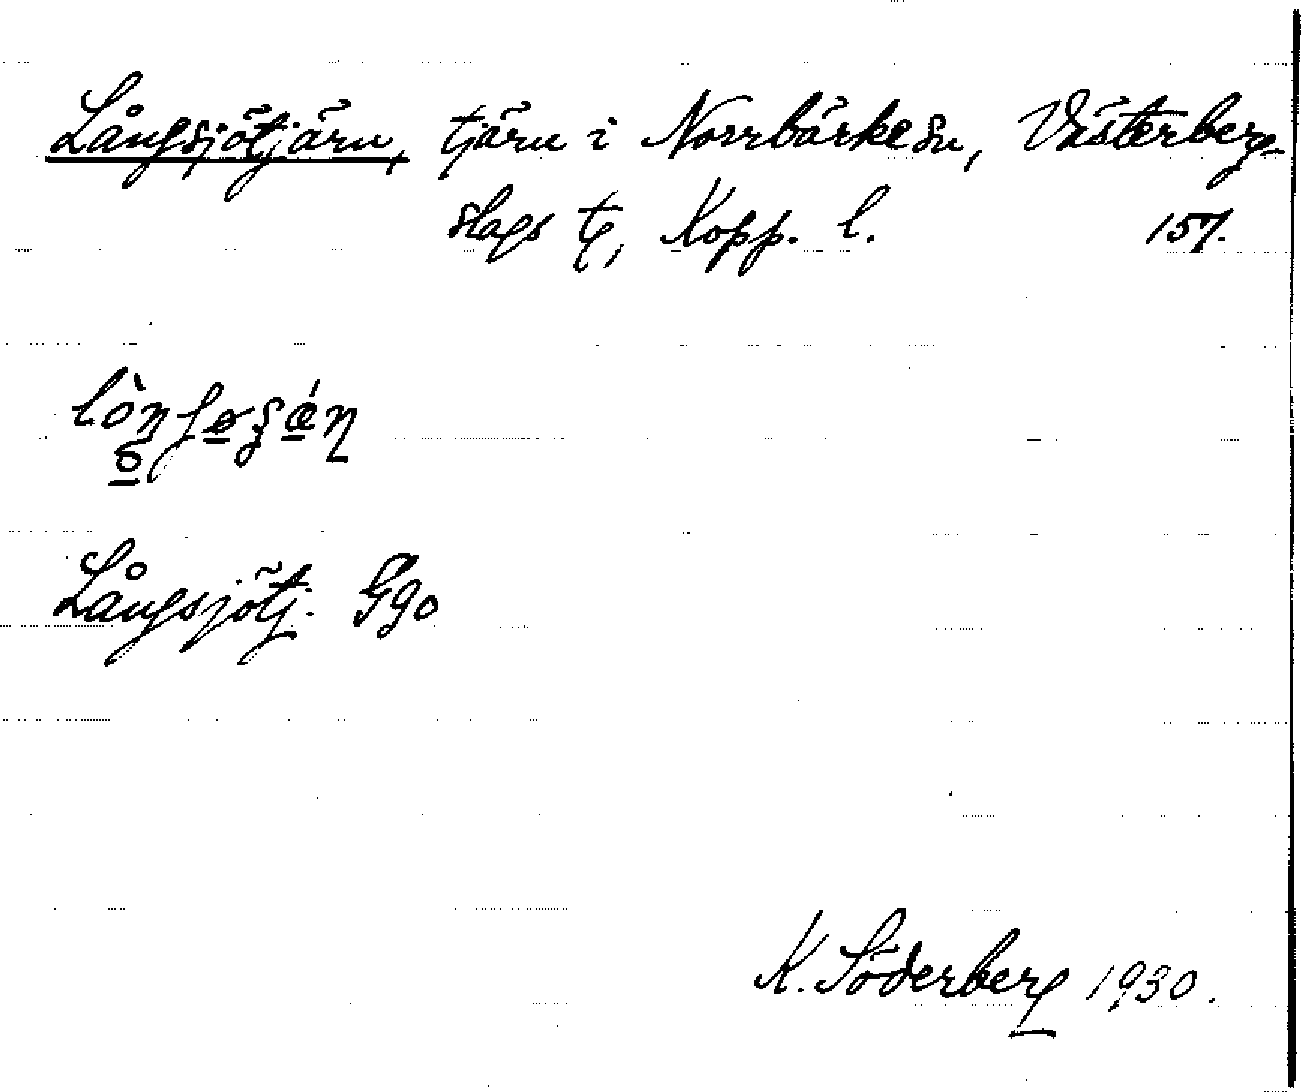 Långsjötjärn, tjärn i Norrbärke sn, Västerberg-
slags tg, Kopp. l. 157.
Långsjötj. Ggo
K. Söderberg 1930.